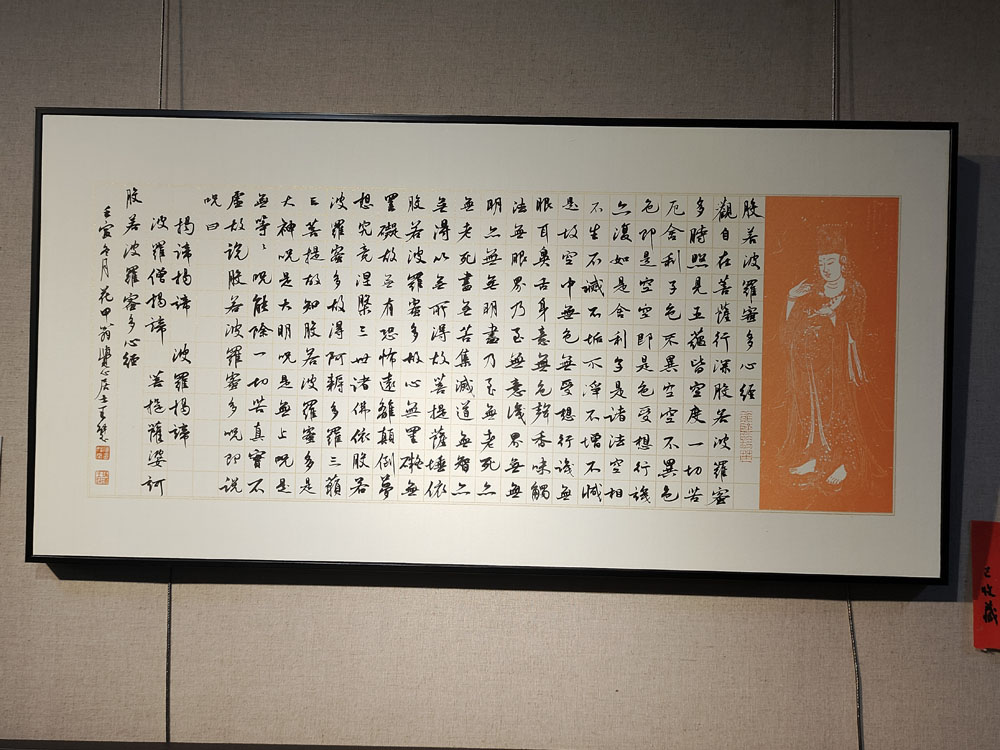 般若波羅蜜多心經
觀自在菩薩行深般若波羅蜜
多時照見五蘊皆空度一切苦
厄舍利子色不異空空不異色
色即是空空即是色受想行識
亦復如是舍利子是諸法空相
不生不滅不垢不淨不增不減
是故空中無色無受想行識無
眼耳鼻舌身意無色聲香味觸
法無眼界乃至無意識界無無
明亦無無明盡乃至無老死亦
無老死盡無苦集滅道無智亦
無得以無所得故菩提薩埵依
般若波羅蜜多故心無罣礙無
罣礙故無有恐怖遠離顛倒夢
想究竟涅槃三世諸佛依般若
波羅蜜多故得阿耨多羅三藐
三菩提故知般若波羅蜜多是
大神呪是大明呪是無上呪是
無等〻呪能除一切苦真實不
虛故說般若波羅蜜多呪即說
呪曰
揭諦揭諦 波羅揭諦
波羅僧揭諦 菩提薩婆訶
般若波羅蜜多心經
壬寅冬月花甲翁覺心居士
已收藏